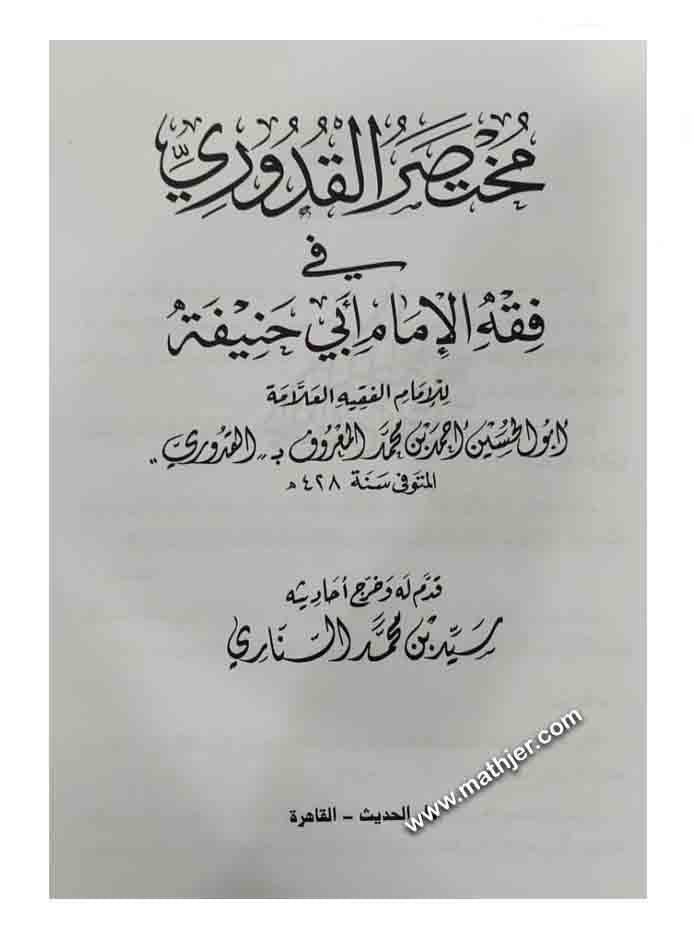 مُخْتَصَرُ القُدُورِيِّ
في
فِقْهِ الإِمَامِ أَبِي حَنِيفَةَ
لِلإِمَامِ الفَقِيهِ العَلَّامَة
أبو الحسين أحمد بن محمد المعروف بـ "القدوري"
المتوفى سَنَة ٤٢٨ هـ
قدَّم لَه وَخرَج أحَادِيثه
سَيِّد بْن محمَّد السِّنَاري
الحديث - القاهرة
www.mathjer.com